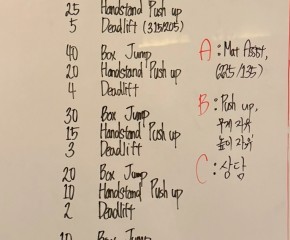 25 Handstand Push up
5 Deadlift (315/205)
40 Box Jump
20 Handstand Push up
4 Deadlift
30 Box Jump
15 Handstand Push up
3 Deadlift
20 Box Jump
10 Handstand Push up
2 Deadlift
10 Box Jump
A : Mat Assist,
(225/135)
B : Push up,
무게 자유
높이 자유
C : 상담